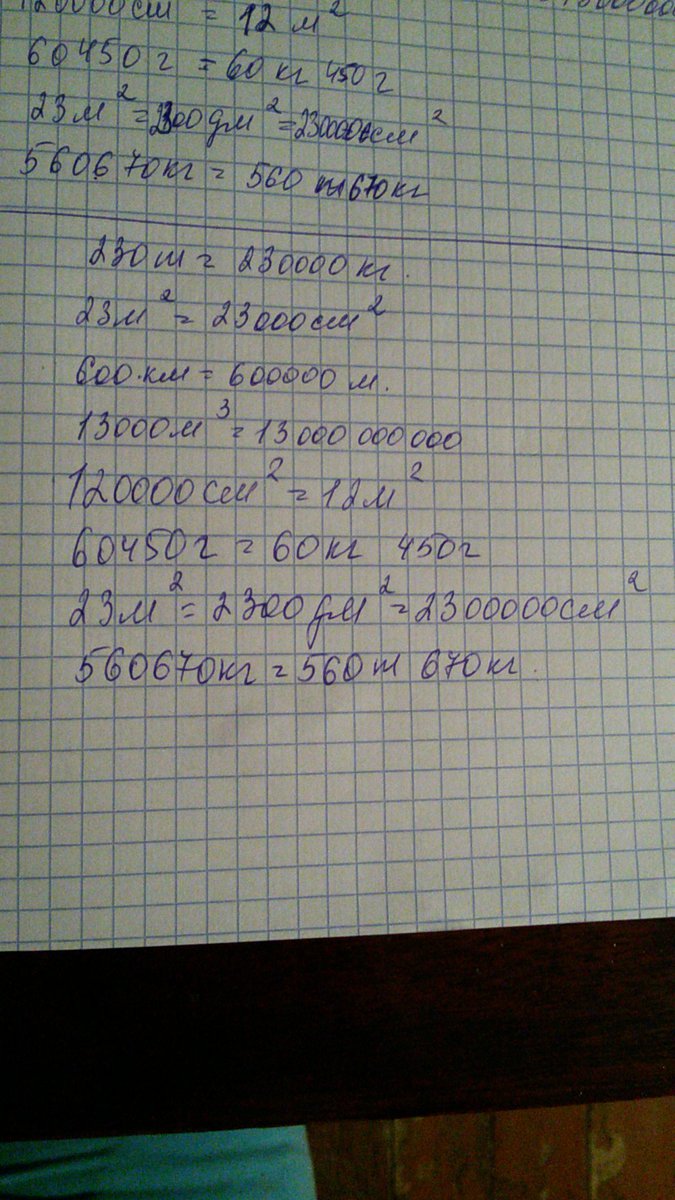 120000см = 12 м²
60450г = 60 кг 450 г
23м² = 2300 дм² = 230000см²
560670кг = 560 т 670кг
230т = 230000 кг.
23м² = 23000см²
600 км = 600000 м.
13000м³ = 13000 000000
120000см² = 12м²
60450г = 60кг 450г
23м² = 2300 дм² = 2300000см²
560670кг = 560 т 670кг.